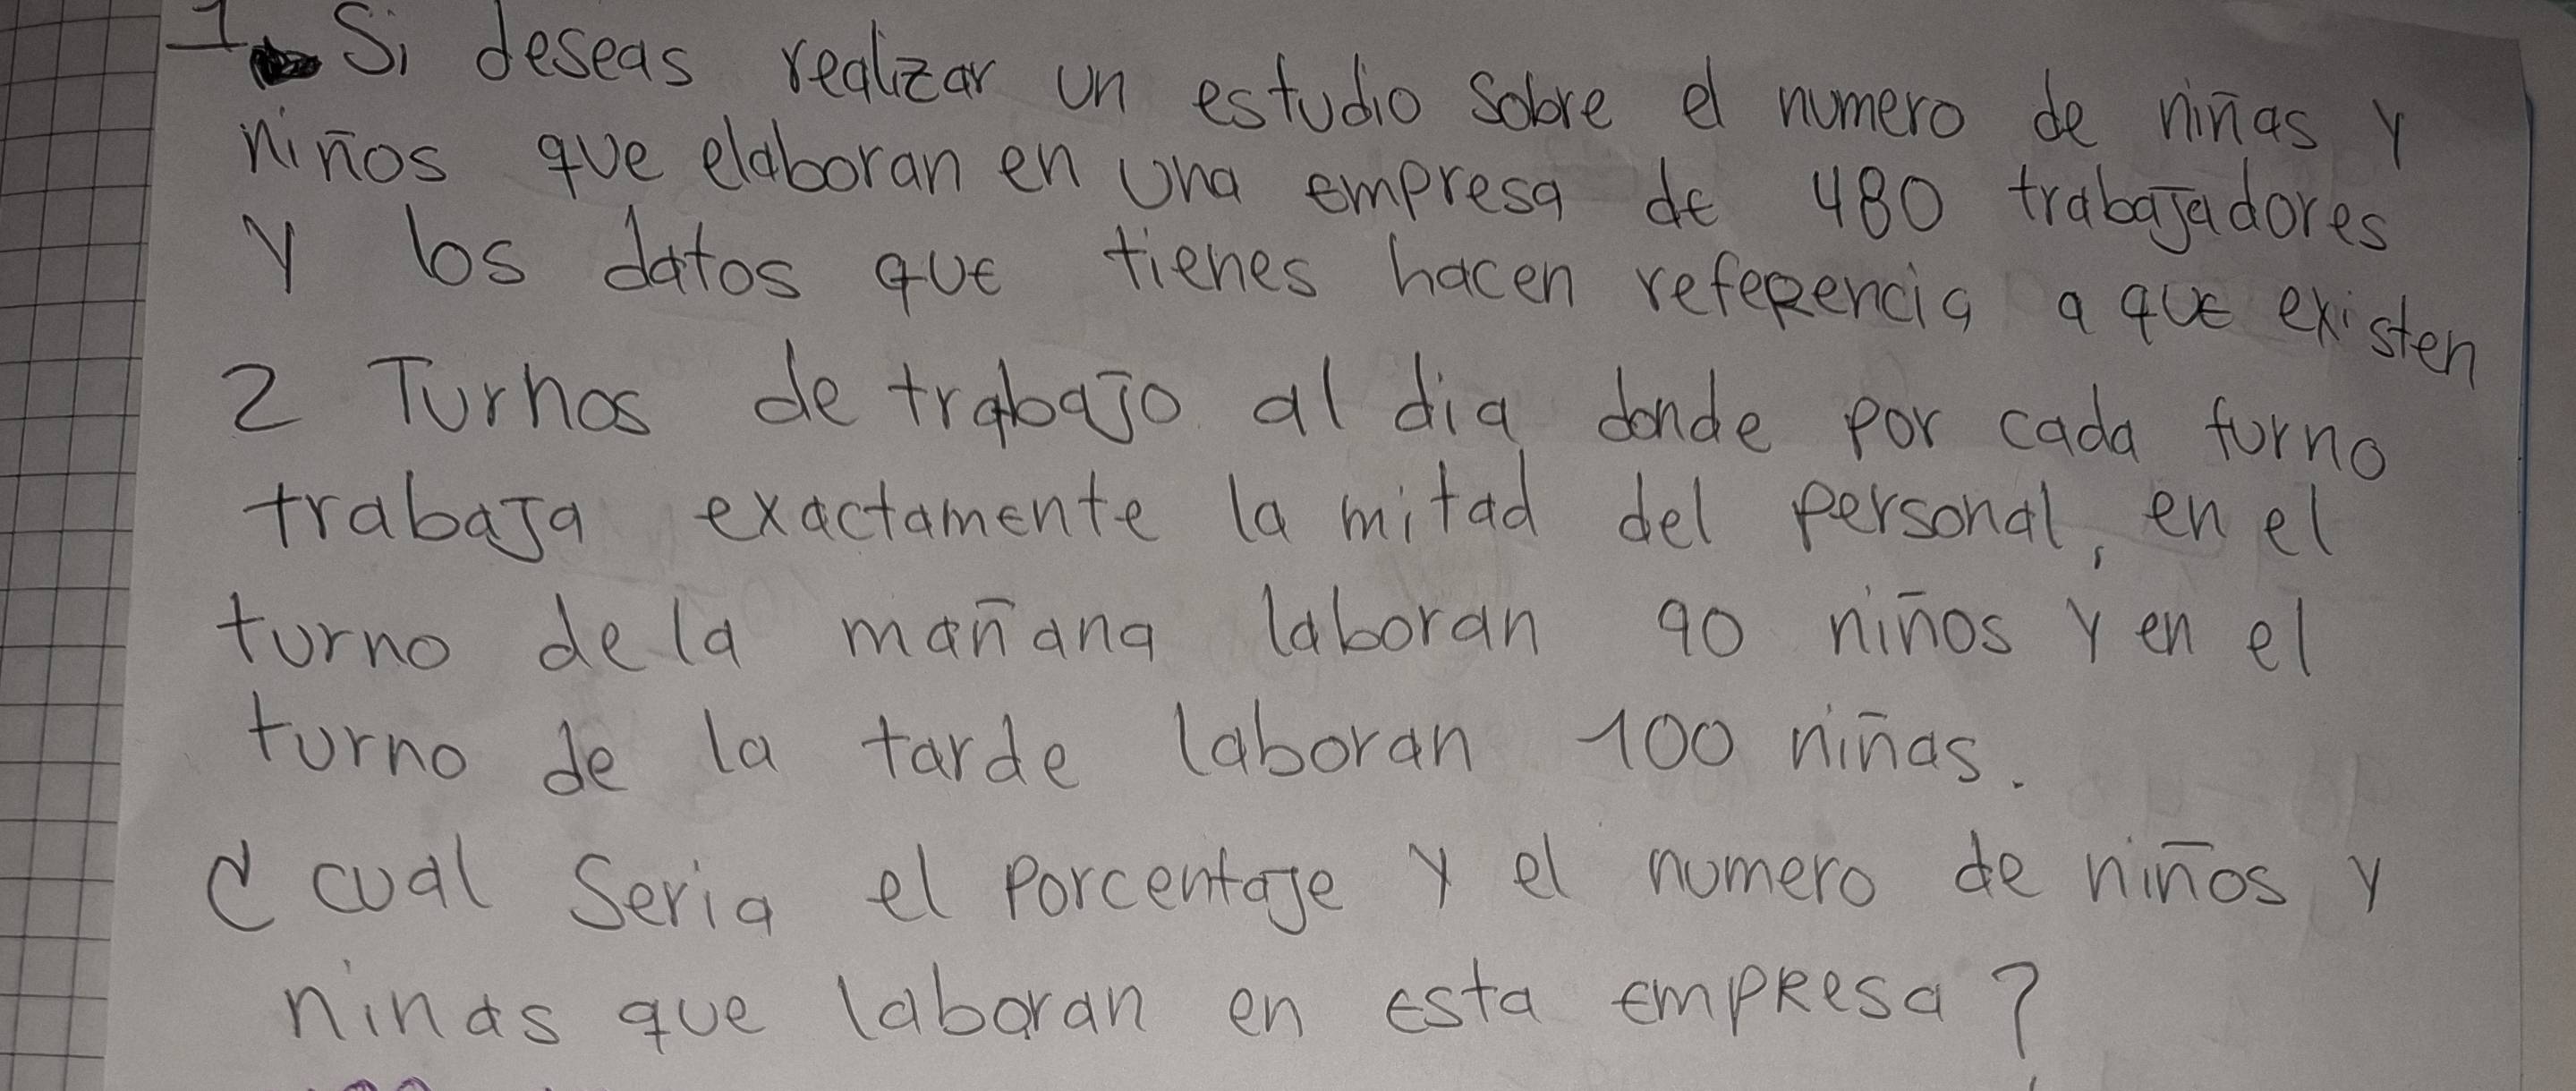 1. Si deseas realizar un estudio sobre el numero de niñas y
niños que elaboran en una empresa de 480 trabajadores
y los datos que tienes hacen referencia a que existen
2 Turnos de trabajo al dia donde por cada turno
trabaja exactamente la mitad del personal, en el
turno de la mañana laboran 90 niños y en el
turno de la tarde laboran 100 niñas.
¿ cual seria el porcentaje y el numero de niños y
ninas que laboran en esta empresa?